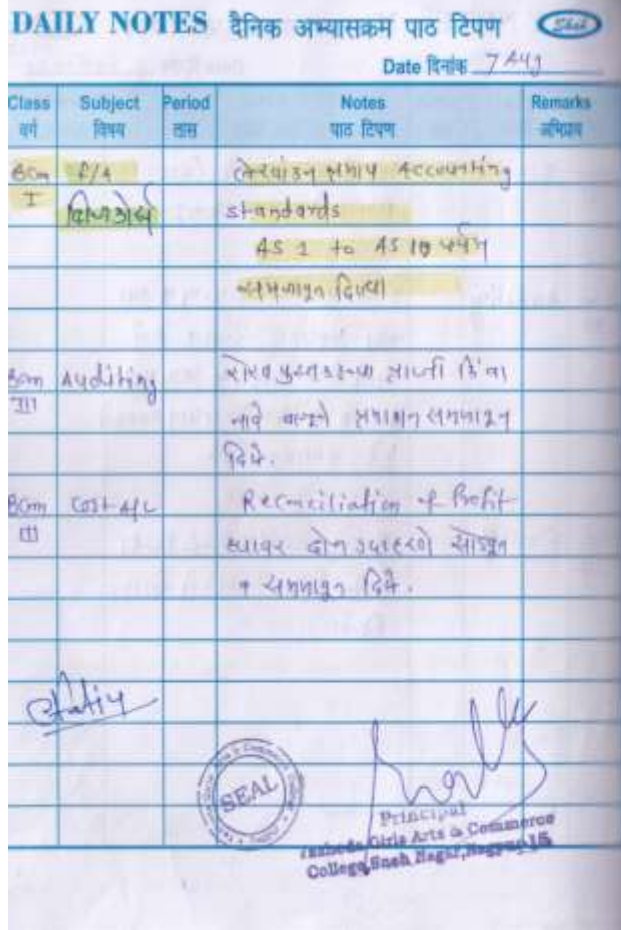 DAILY NOTES दैनिक अभ्यासक्रम पाठ टिपण
Date दिनांक 7 Aug
Class Subject Period Notes Remarks
वर्ग विषय तास पाठ टिपण अभिप्राय
BCom F/A लेखांकन प्रमाप Accounting
I standards
AS 1 to AS 10 पर्यंत
समजावून दिल्या
BCom Auditing रोख पुस्तकाच्या किंवा
III नावे बाजूचे प्रमाणन समजावून
दिले.
BCom Cost A/c Reconciliation of Profit
III ह्यावर दोन उदाहरणे सोडवून
व समजावून दिले.
SEAL
Principal
Girls Arts & Commerce
College, Sneh Nagar, Nagpur-15